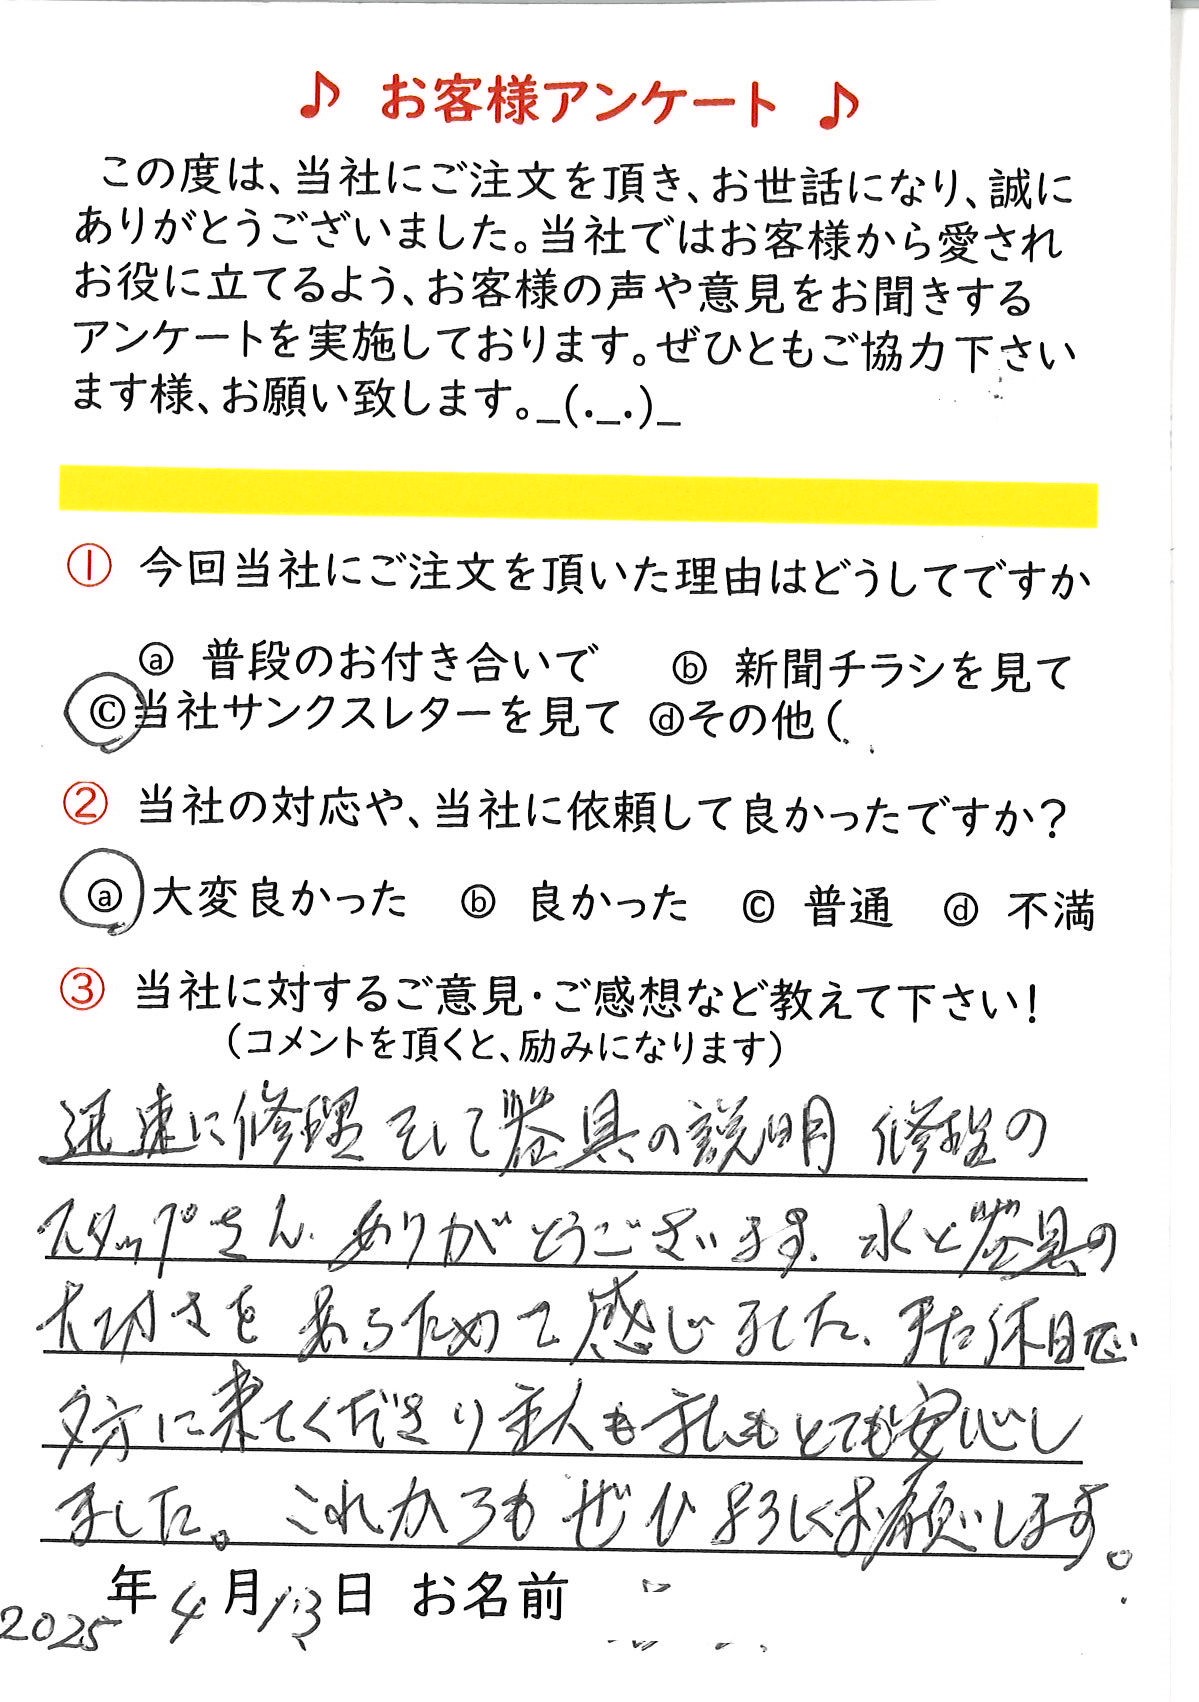 ♪ お客様アンケート ♪
この度は、当社にご注文を頂き、お世話になり、誠に
ありがとうございました。当社ではお客様から愛され
お役に立てるよう、お客様の声や意見をお聞きする
アンケートを実施しております。ぜひともご協力下さい
ます様、お願い致します。_(._.)_
① 今回当社にご注文を頂いた理由はどうしてですか
ⓐ 普段のお付き合いで ⓑ 新聞チラシを見て
ⓒ当社サンクスレターを見て ⓓその他(
② 当社の対応や、当社に依頼して良かったですか?
ⓐ 大変良かった ⓑ 良かった ⓒ 普通 ⓓ 不満
③ 当社に対するご意見・ご感想など教えて下さい!
(コメントを頂くと、励みになります)
迅速に修理 そして器具の説明 修理の
スタッフさん、ありがとうございます。水と器具の
大切さを あらためて感じました、また休日
夕方に来てくださり主人も私もとても安心し
ました。これからもぜひよろしくお願いします。
2025年4月13日 お名前